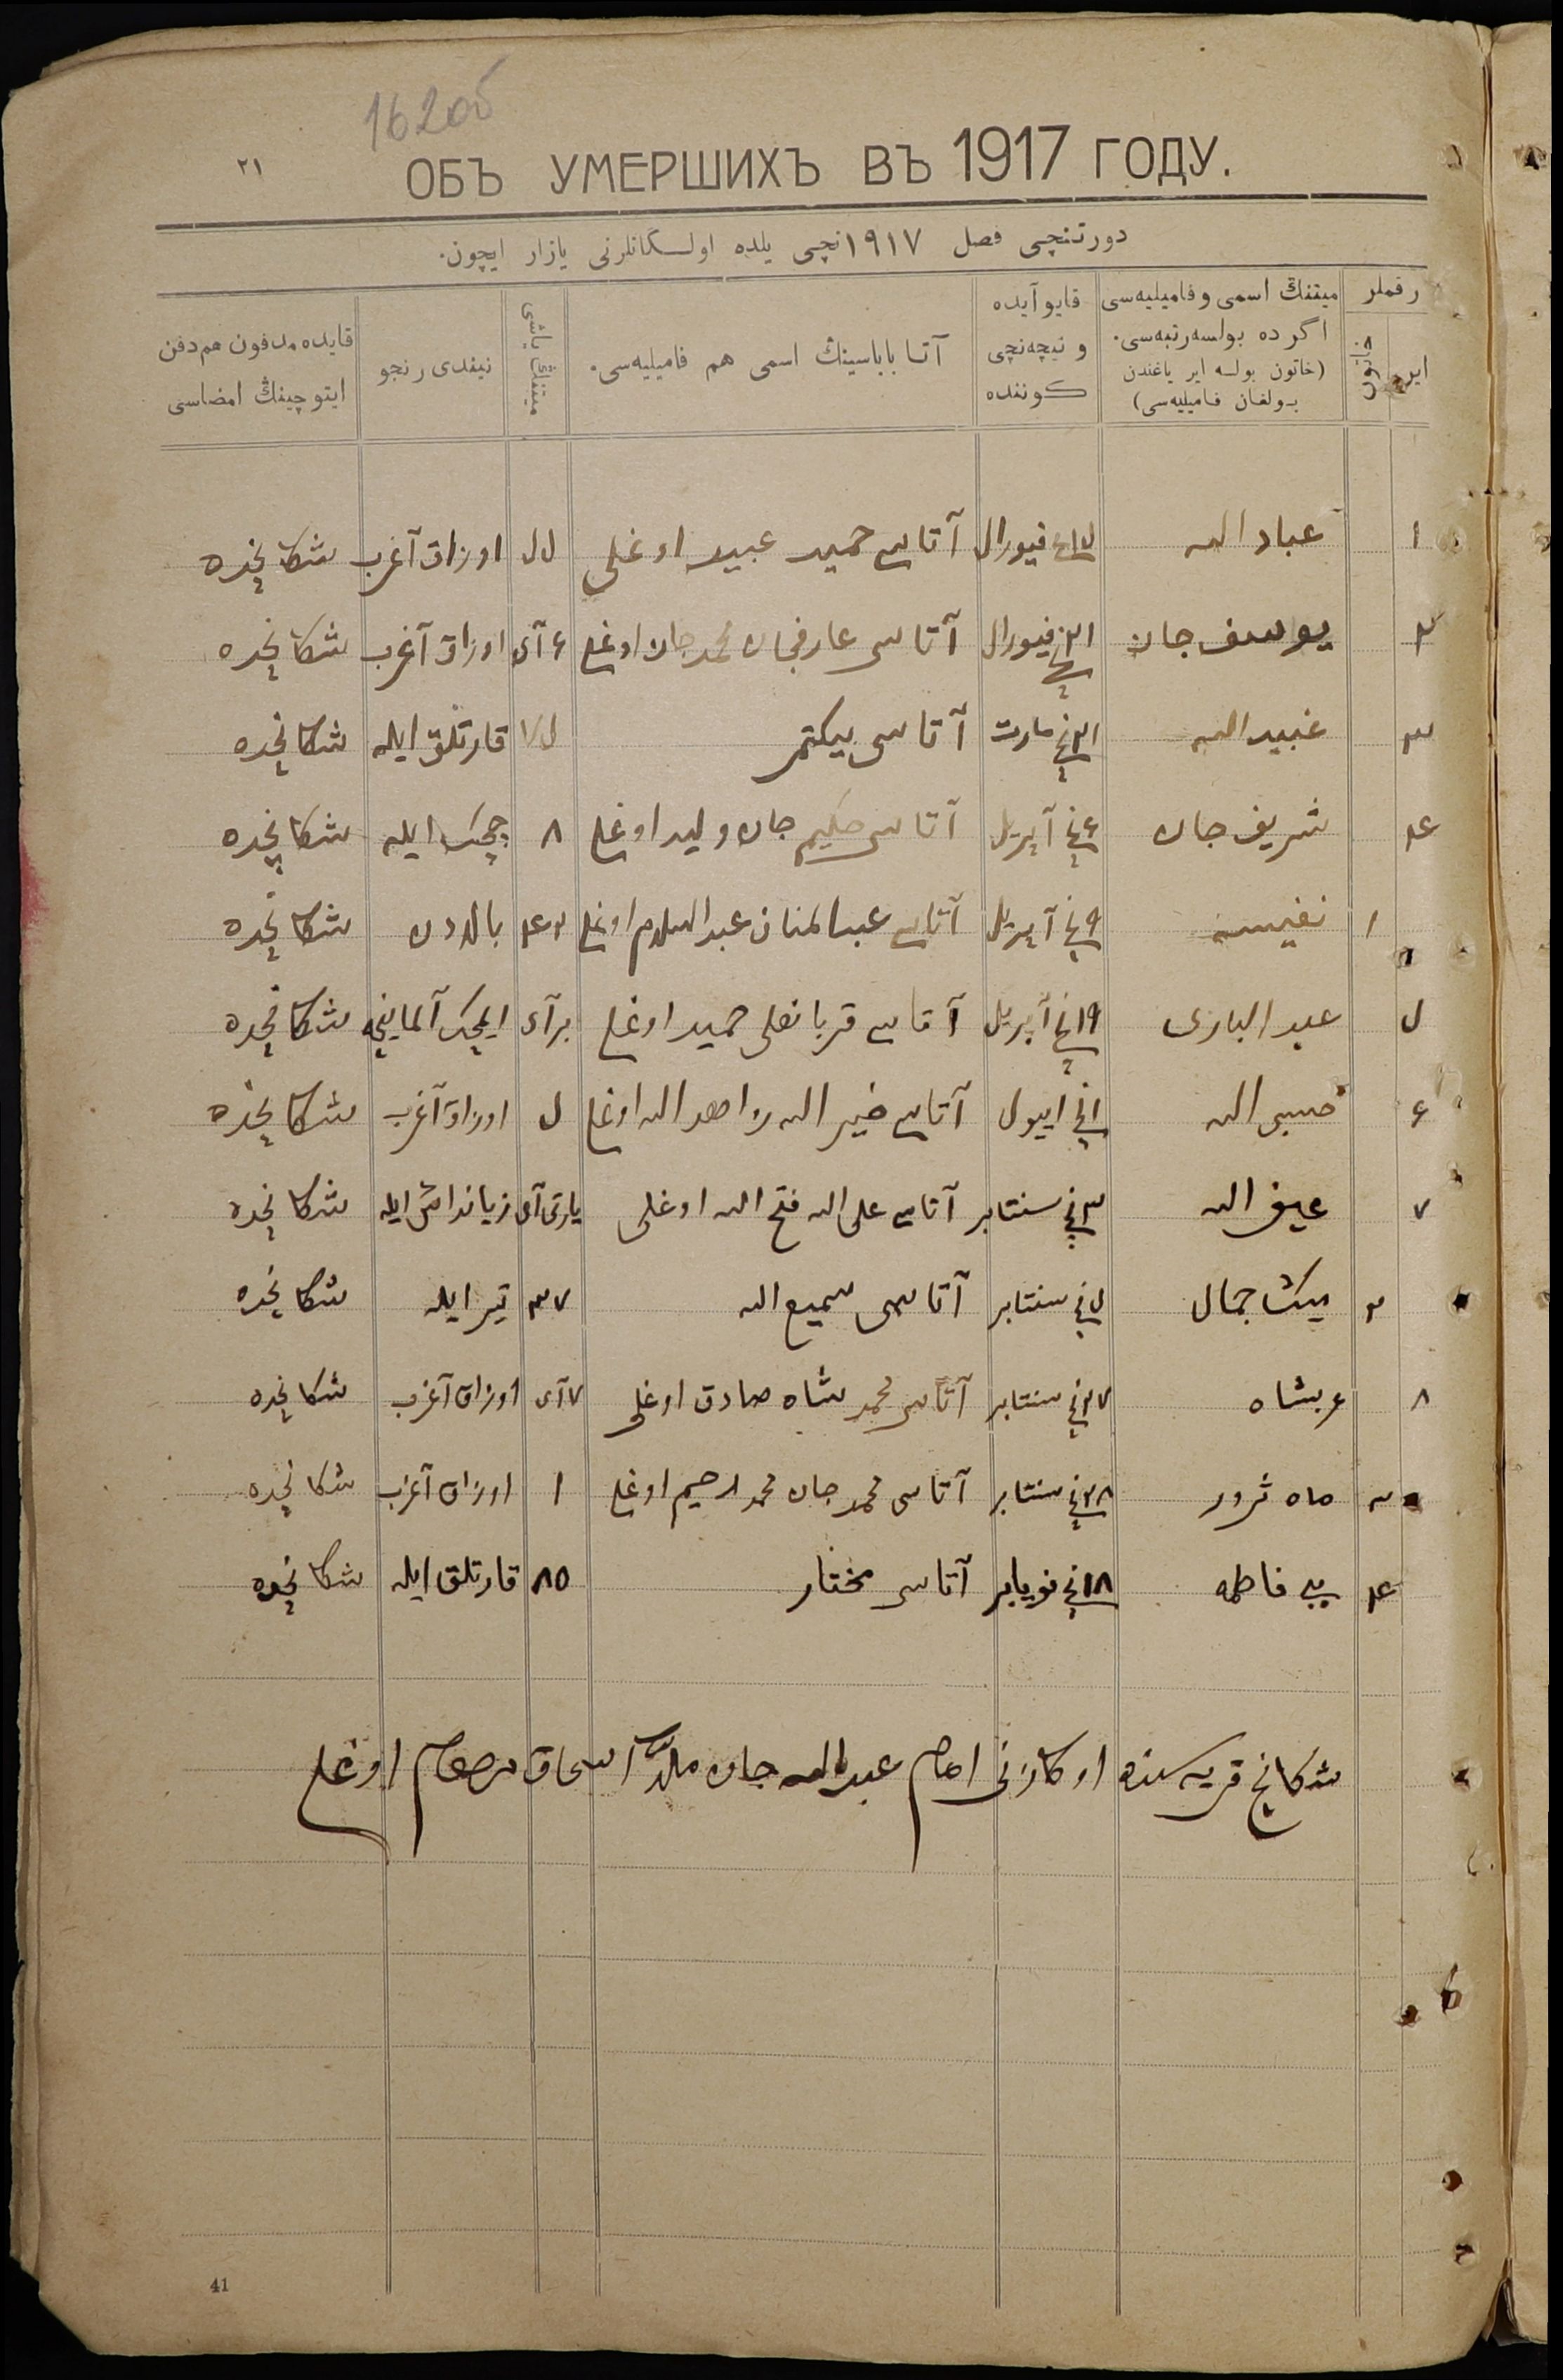 162об
٢١
ОБЪ УМЕРШИХЪ ВЪ 1917 ГОДУ.
دورتنچی فصل ١٩١٧نچی یلده اولـگانلرنی یازار ایچون.
رقملر
ایر
خاتون
میتنڭ اسمی وفامیلیه‌سی اگر ده بولسه رتبه‌سی. (خاتون بولسه ایر یاغندن بولغان فامیلیه‌سی)
قایو آیده و نیچه‌نچی کوننده
آتا باباسینڭ اسمی هم فامیلیه‌سی.
میتنڭ یاشی
نیندی رنجو
قایده مدفون هم دفن ایتوچینڭ امضاسی
١ عباد الله فیورال آتاسی حمید عبید اوغلی اوزاق آغرب شکانچده
٢ یوسف جان فیورال آتاسی عارفجان محمدجان اوغلی ۶ آی اوزاق آغرب شکانچده
٣ عبید الله ٢١نچی مارت آتاسی بیکتمر ٧۵ قارتلق ایله شکانچده
۴ شریف جان ۶نچی آپریل آتاسی حکیم جان ولید اوغلی ٨ چچک ایله شکانچده
١ نفیسه ٩نچی آپریل آتاسی عبدالمنان عبدالسلام اوغلی ٢۴ بالادن شکانچده
۵ عبد الباری ١٩نچی آپریل آتاسی قربانعلی حمید اوغلی بر آی ایمچک آلماینچه شکانچده
۶ حسبی الله ١نچی اییول آتاسی خیر الله اوغلی ۵ اوزاق آغرب شکانچده
٧ عیف الله ٣نچی سنتابر آتاسی علی الله فتح الله اوغلی یارتی آی زیانداش ایله شکانچده
٢ جمال ۵نچی سنتابر آتاسی سمیع الله ٣٧ تیر ایله شکانچده
٨ عربشاه ٢٧نچی سنتابر آتاسی محمد شاه صادق اوغلی ٧ آی اوزاق آغرب شکانچده
٣ ماه ثرور ٢٨نچی سنتابر آتاسی محمد جان محمد رحیم اوغلی ١ اوزاق آغرب شکانچده
۴ بی بی فاطمه ١٨نچی نویابر آتاسی مختار ٨۵ قارتلق ایله شکانچده
شکانچ قریه سنده امام عبدالله جان ملا اسحاق اوغلی
41